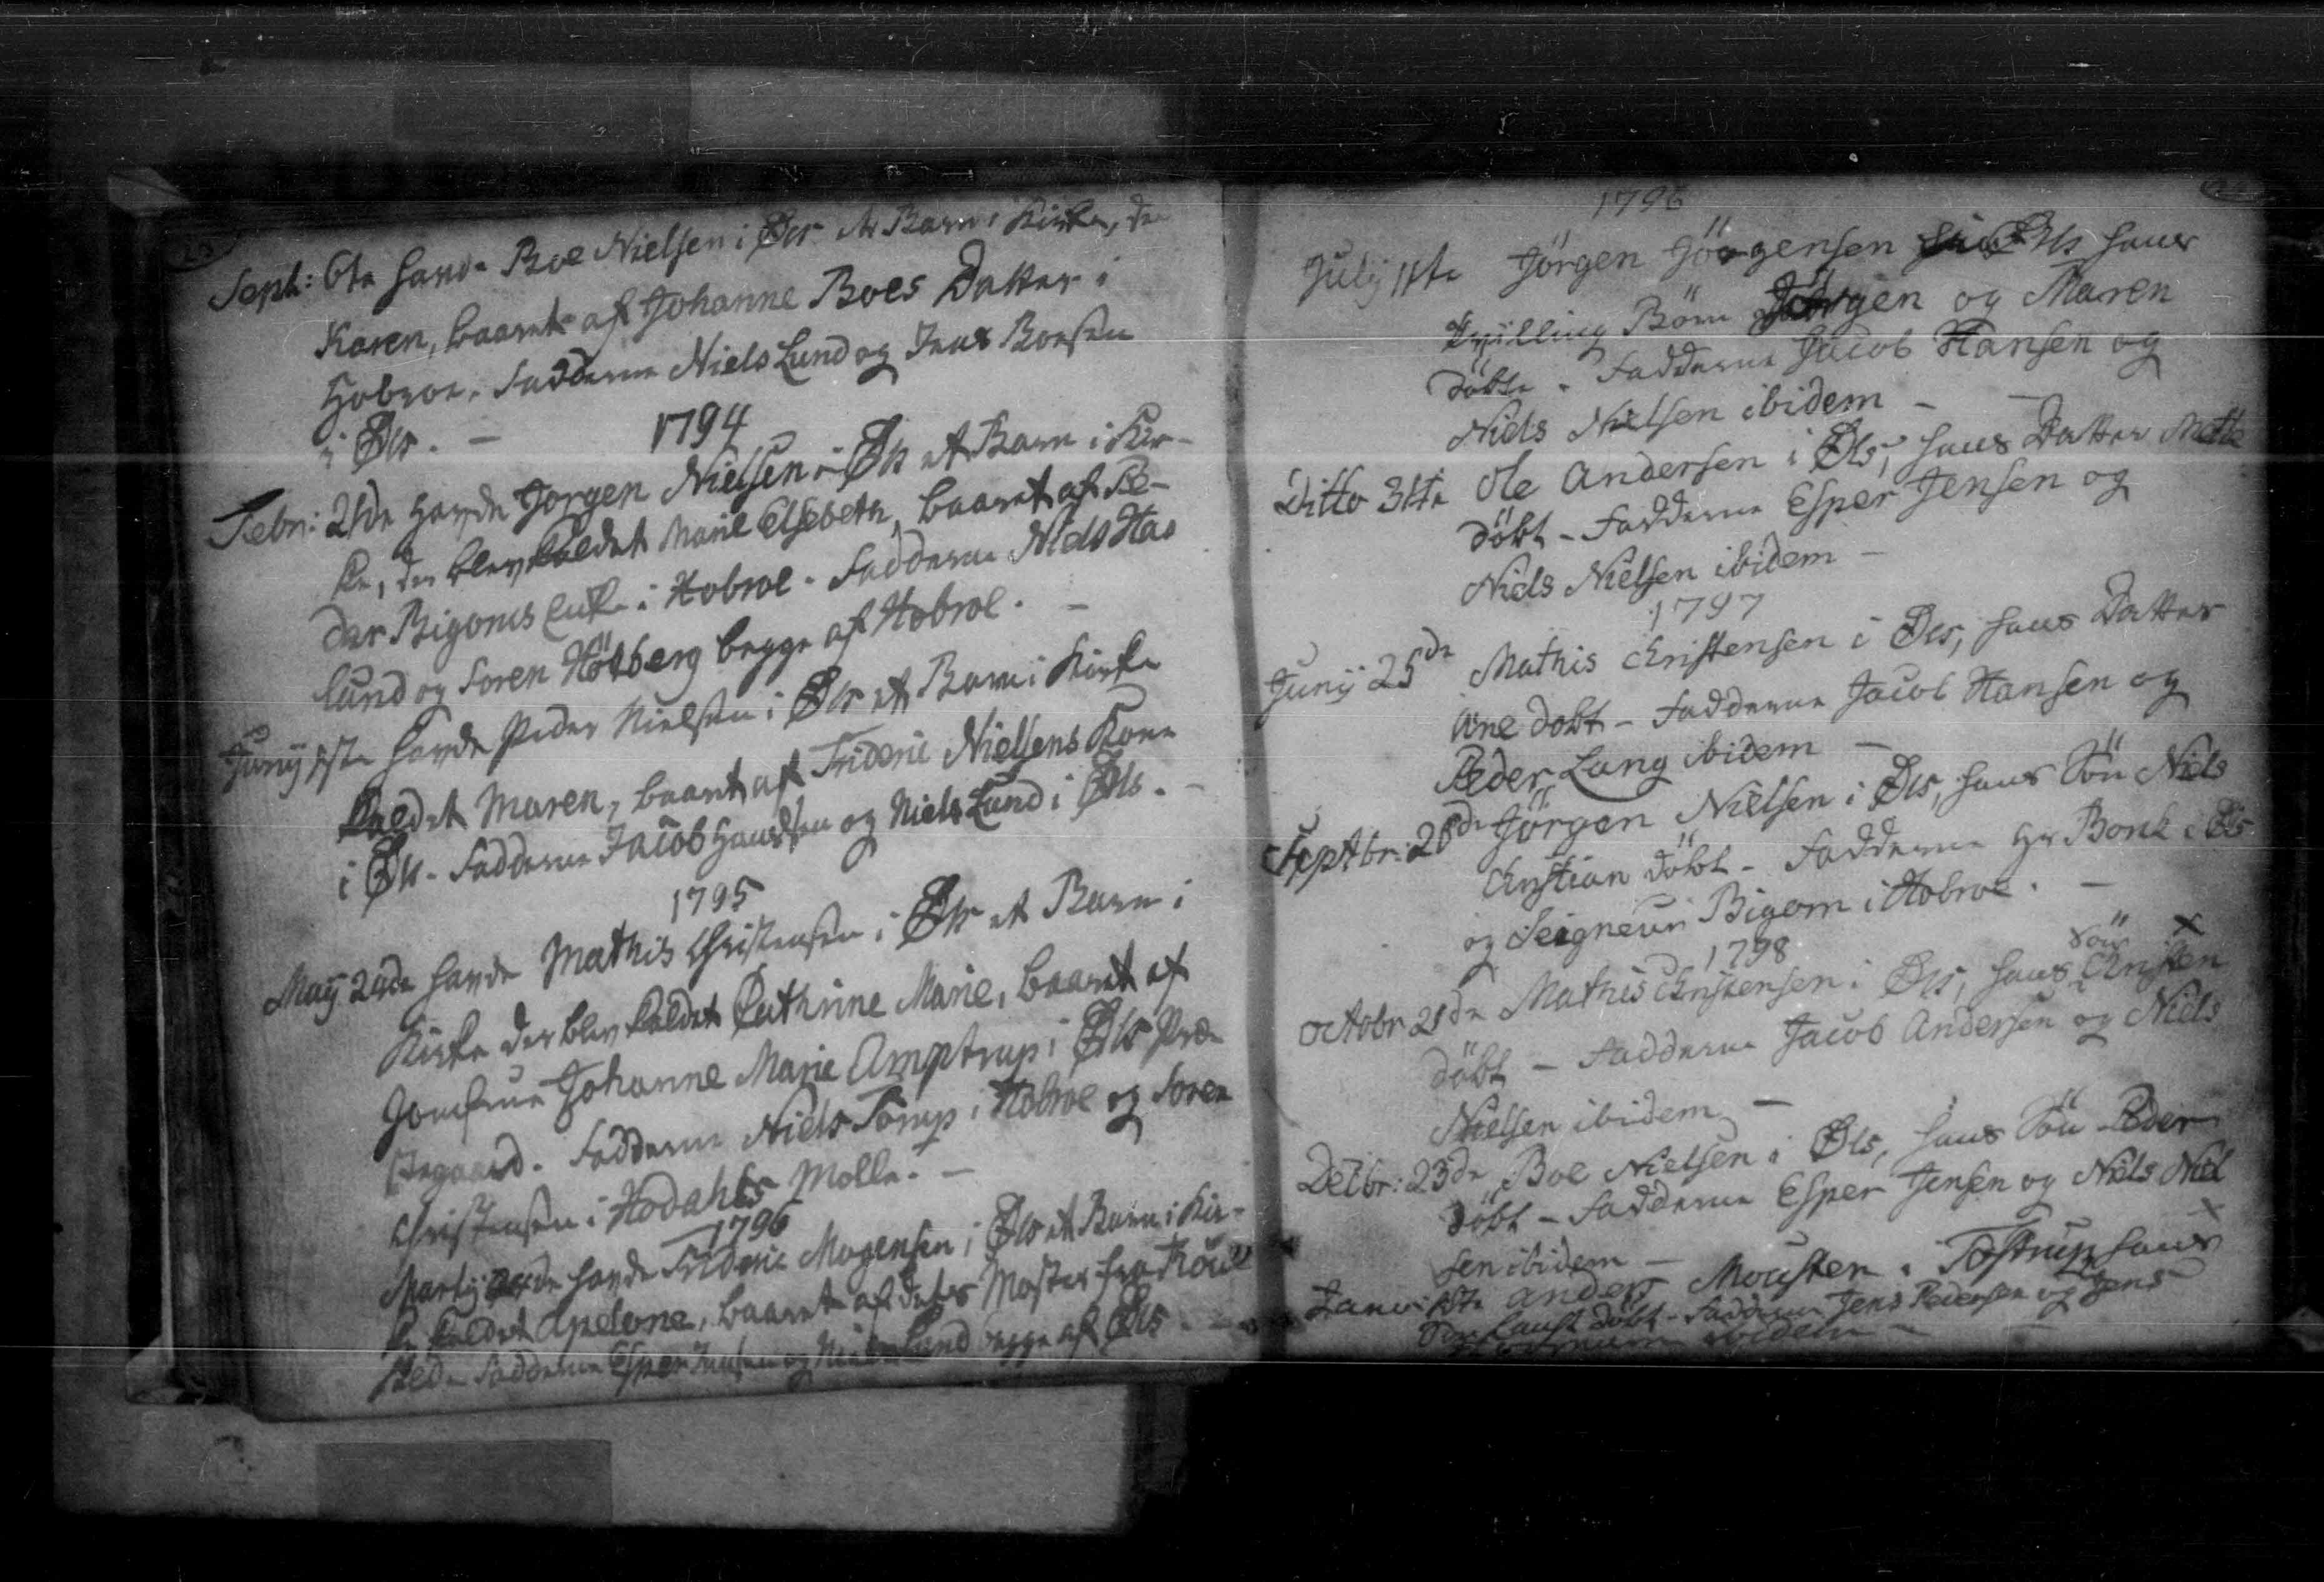 Sept: 6te havde Boe Nielsen i Øls et Barn i Kirke, den
Karen, baaret af Johanne Boes Datter i
Hobroe. Fadderne Niels Lund og Jens Boesen
i Øls. -
1794
Febr: 21de havde Jorgen Nielsen i Øls et Barn i Kir-
ke, der blev kaldet Marie Elsebeth, baaret af Pe-
der Bigoms Enke i Hobroe. Fadderne Niels Has
lund og Soren Hötberg begge af Hobroe. -
Junij havde Peder Nielsen i Øls et Barn i Kirke
kaldet Maren, baaret af Frideric Nielsens Kone
i Øls. Fadderne Jacob Handsen og Niels Lund i Øls. -
1795
Maij 24de havde Mathis Christensen i Øls et Barn i
Kirke der blev kaldet Cathrine Marie, baaret af
Jomfrue Johanne Marie Amptrup i Øls Præ
stegaard. Fadderne Niels i Hobroe og Soren
Christensen i Hodahls Mølle. -
1796
Martij havde Frideric Mogensen i Øls et Barn i Kir-
ke kaldet Apelone, baaret af dets Moster fra
Fadderne Esper Jensen og Niels Lund begge af Øls
1796
Julij Jörgen Jörgensen i Øls hans
Tvilling Börn Jörgen og Maren
döbte. Fadderne Jacob Hansen og
Niels Nielsen ibidem -
Ditto 31te Ole Andersen i Øls, hans Datter Mette
döbt - Fadderne Esper Jensen og
Niels Nielsen ibidem -
1797
Junij 25de Mathis Christensen i Øls, hans Datter
Ane dobt - Fadderne Jacob Hansen og
Peder Lang ibidem -
Septbr: 28de Jörgen Nielsen i Øls, hans Sön Niels
Christian döbt - Fadderne Hr Bonk i Øls
og Seigneur Bigom i Hobroe. -
1798
Sön x
Octobr 21de Mathis Christensen i Øls, hans Christen
döbt - Fadderne Jacob Andersen og Niels
Nielsen ibidem -
Decbr: 23de Boe Nielsen i Øls, hans Sön Peder
döbt - Fadderne Esper Jensen og Niels Niel
sen ibidem -
Anders Mousten i Tostrup hans
Sön döbt - Fadderne Jens Pedersen og Jens
ibidem -